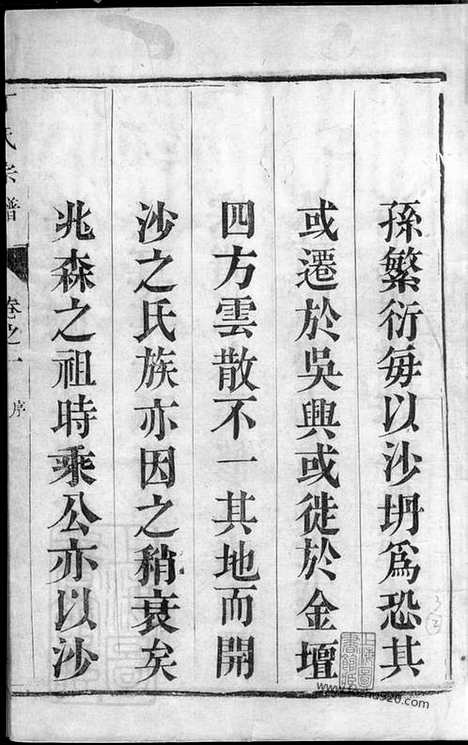 孫繁衍每以沙坍爲恐其
或遷於吳興或徙於金壇
四方雲散不一其地而開
沙之氏族亦因之稍衰矣
兆森之祖時乘公亦以沙
氏宗譜
卷之一
序